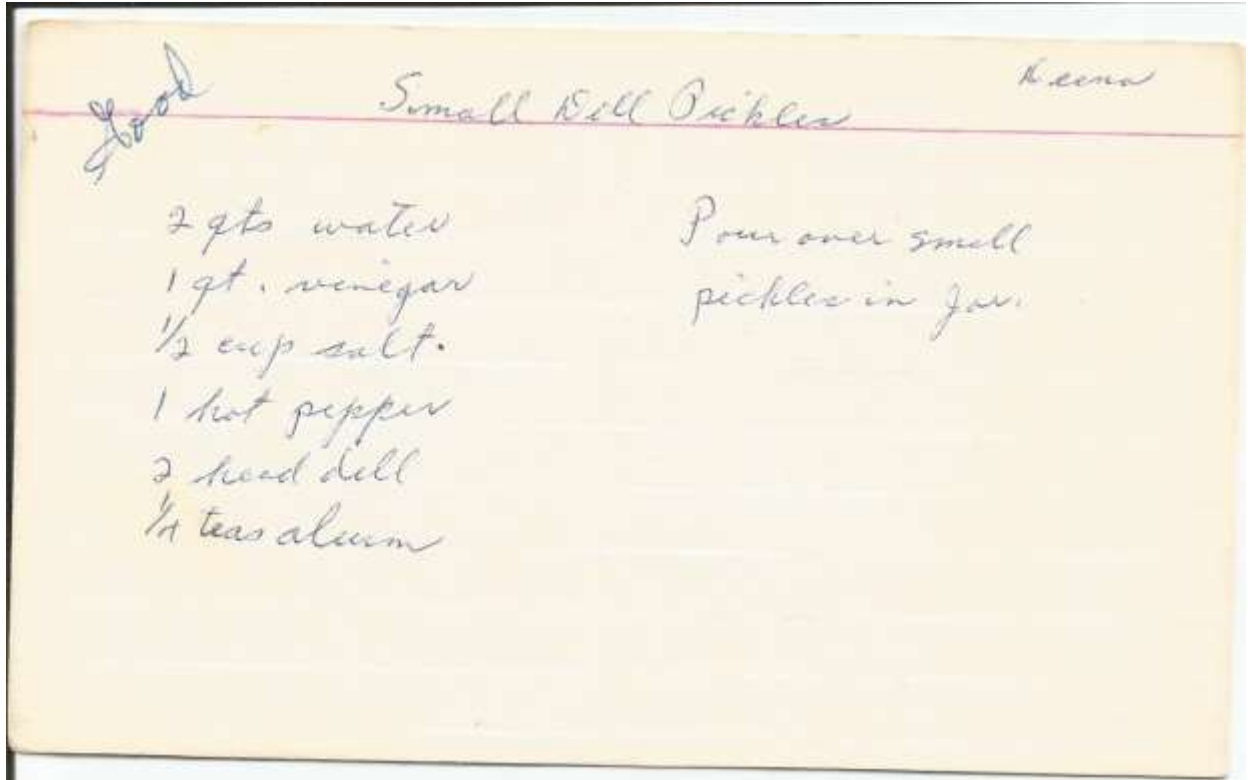 Good
Small Dill Pickles
2 qts water
1 qt. vinegar
1/2 cup salt.
1 hot pepper
2 head dill
1/4 teas alum
Pour over small
pickles in jar.